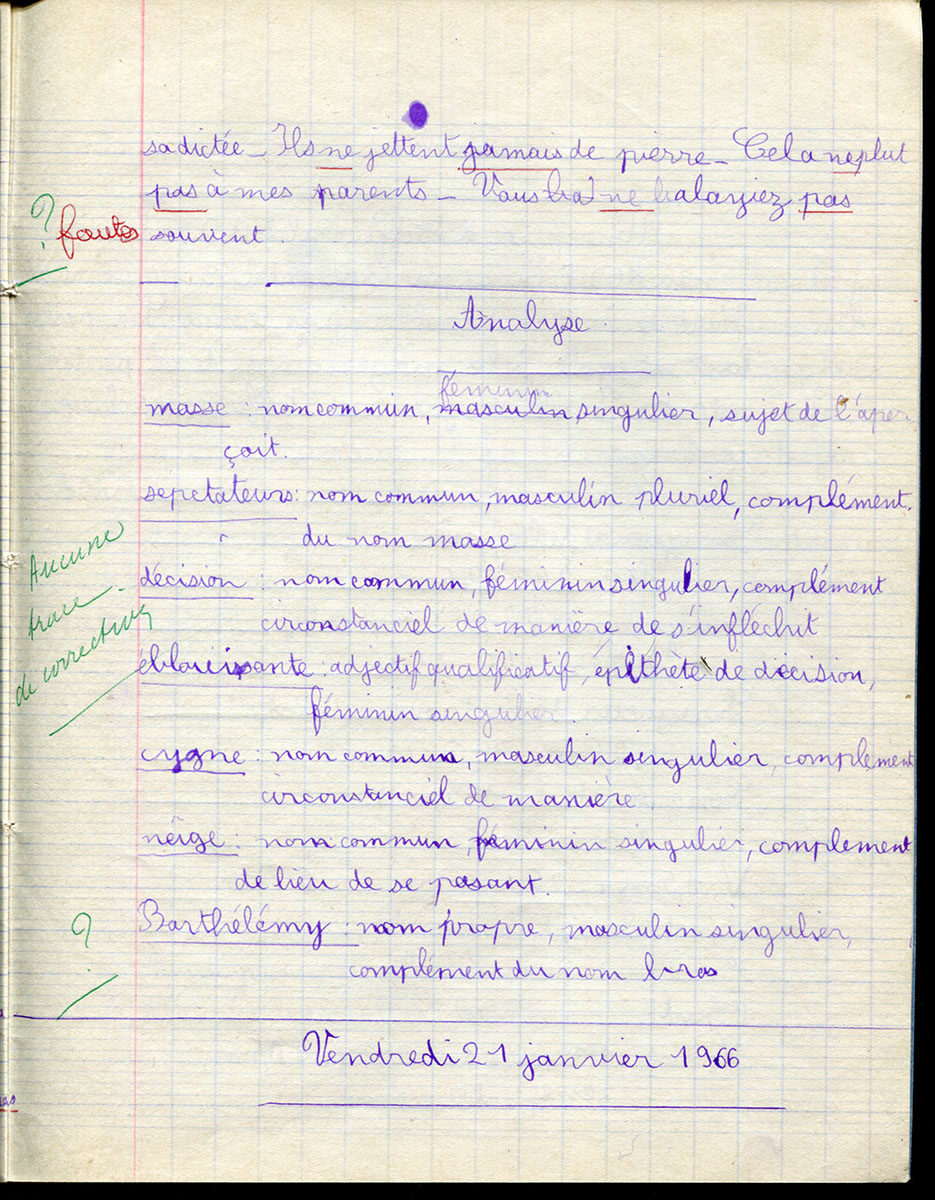 sa dictée _ Ils ne jettent jamais de pierre _ Cela ne plut
pas à mes parents _ Vous ne balayiez pas
? fautes souvent.
Analyse
féminin
masse : nom commun, masculin singulier, sujet de l'aper
çoit.
sepctateurs : nom commun, masculin pluriel, complément
du nom masse
Aucune
trace
de correction
décision : nom commun, féminin singulier, complément
circonstanciel de manière de s'infléchit
éblouissante : adjectif qualificatif, épithète de décision,
féminin singulier.
cygne : nom commun, masculin singulier, complement
circonstanciel de manière
neige : nom commun, féminin singulier, complement
de lieu de se posant.
? Barthélémy : nom propre, masculin singulier,
complément du nom bras
Vendredi 21 janvier 1966